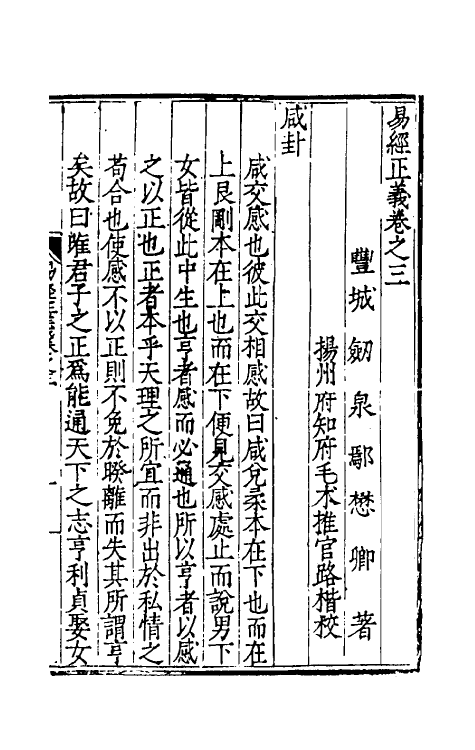 易經正義卷之三
豐城劒泉鄢懋卿著
揚州府知府毛木推官路楷校
咸卦
咸交感也彼此交相感故曰咸兌柔本在下也而在
上艮剛本在上也而在下便見交感處止而說男下
女皆從此中生也亨者感而必通也所以亨者以感
之以正也正者本乎天理之所宜而非出於私情之
苟合也使感不以正則不免於睽離而失其所謂亨
矣故曰唯君子之正爲能通天下之志亨利貞娶女